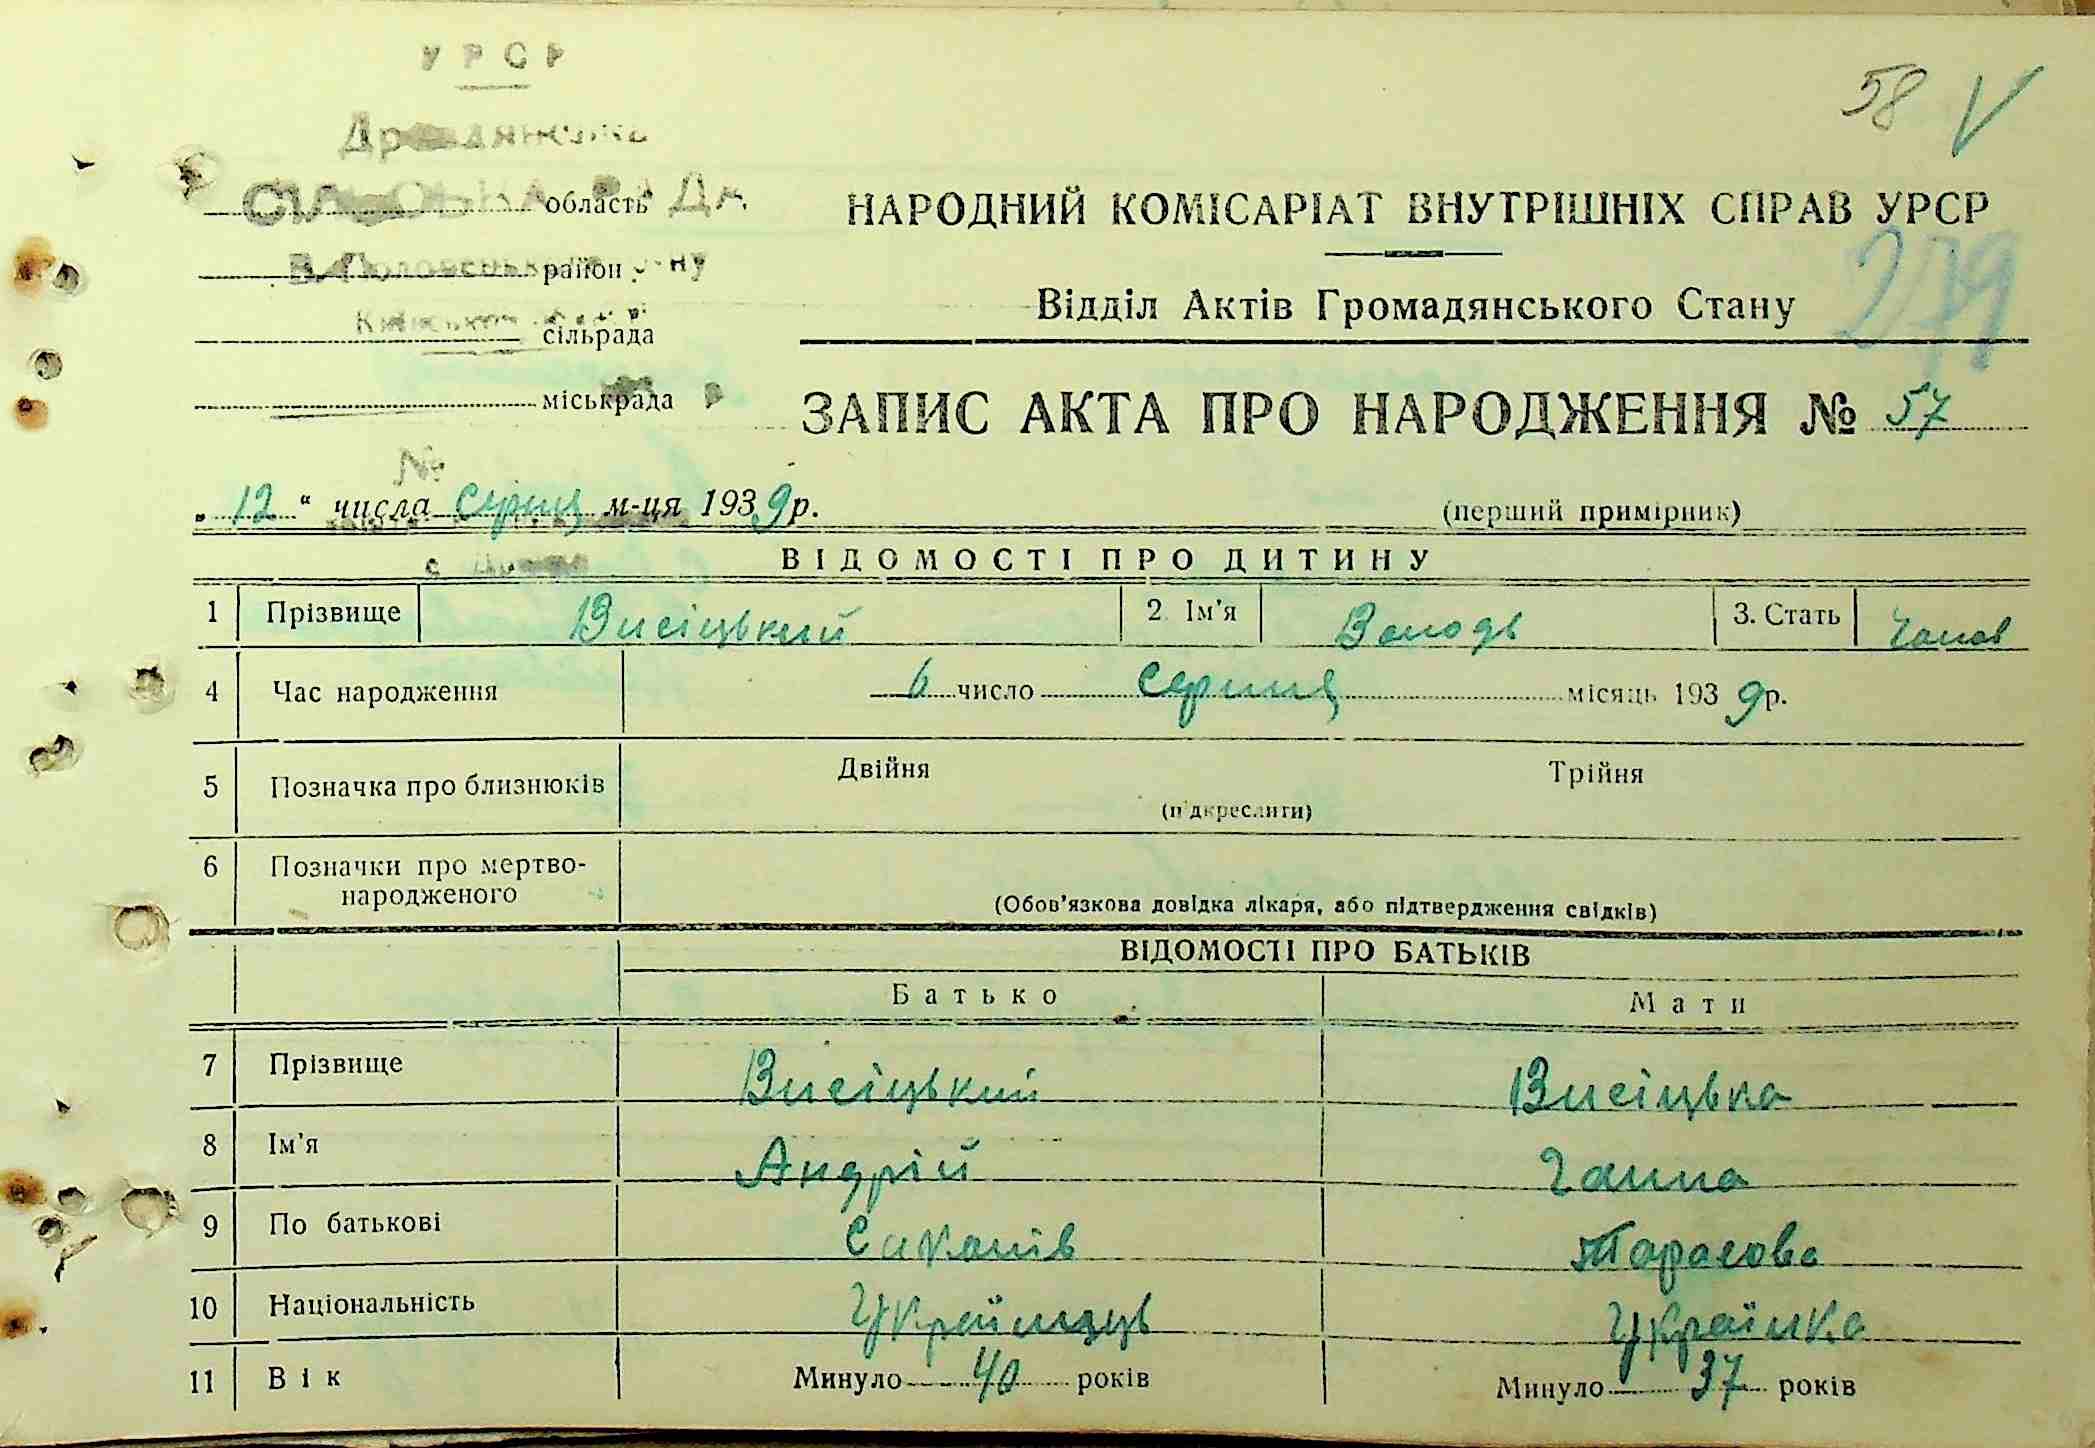 УРСР
58 V
СІЛЬСЬКА РАДА
область
НАРОДНИЙ КОМІСАРІАТ ВНУТРІШНІХ СПРАВ УРСР
район
279
Відділ Актів Громадянського Стану
сільрада
міськрада
ЗАПИС АКТА ПРО НАРОДЖЕННЯ № 57
№
„ 12 “ числа Серпц м-ця 1939 р.
(перший примірник)
ВІДОМОСТІ ПРО ДИТИНУ
1 Прізвище Висіцький 2. Ім'я Володь 3. Стать Чолов
4 Час народження 6 число Серпня місяць 1939 р.
5 Позначка про близнюків Двійня Трійня
(підкреслити)
6 Позначки про мертво-
народженого
(Обов'язкова довідка лікаря, або підтвердження свідків)
ВІДОМОСТІ ПРО БАТЬКІВ
Батько Мати
7 Прізвище Висіцький Висіцька
8 Ім'я Андрій Ганна
9 По батькові Тарасова
10 Національність Українець Українка
11 Вік Минуло 40 років Минуло 37 років